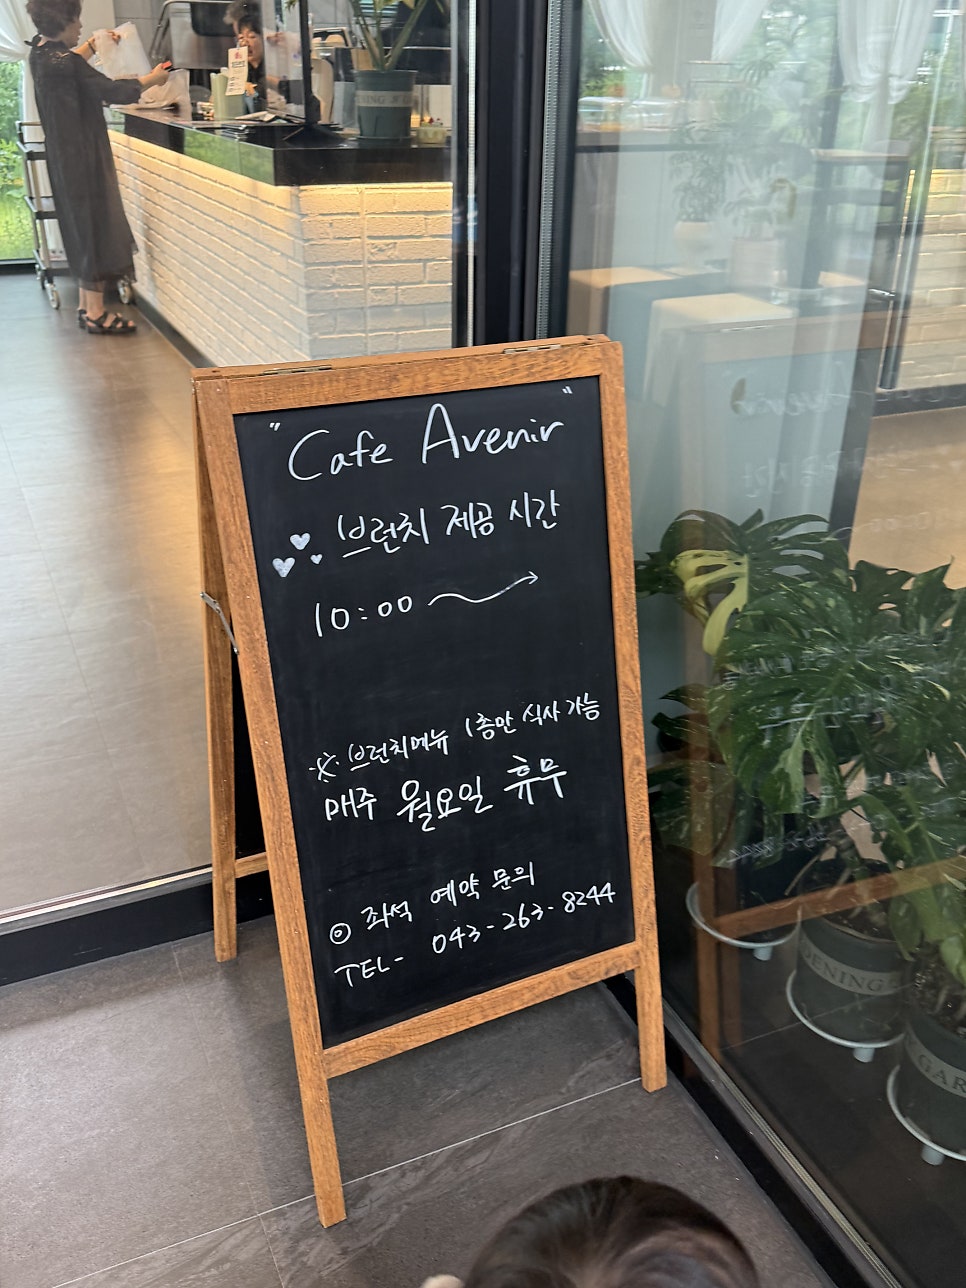 "Cafe Avenir"
브런치 제공 시간
10:00
※ 브런치메뉴 1층만 식사 가능
매주 월요일 휴무
◎ 좌석 예약 문의
TEL- 043-263-8244
GAR